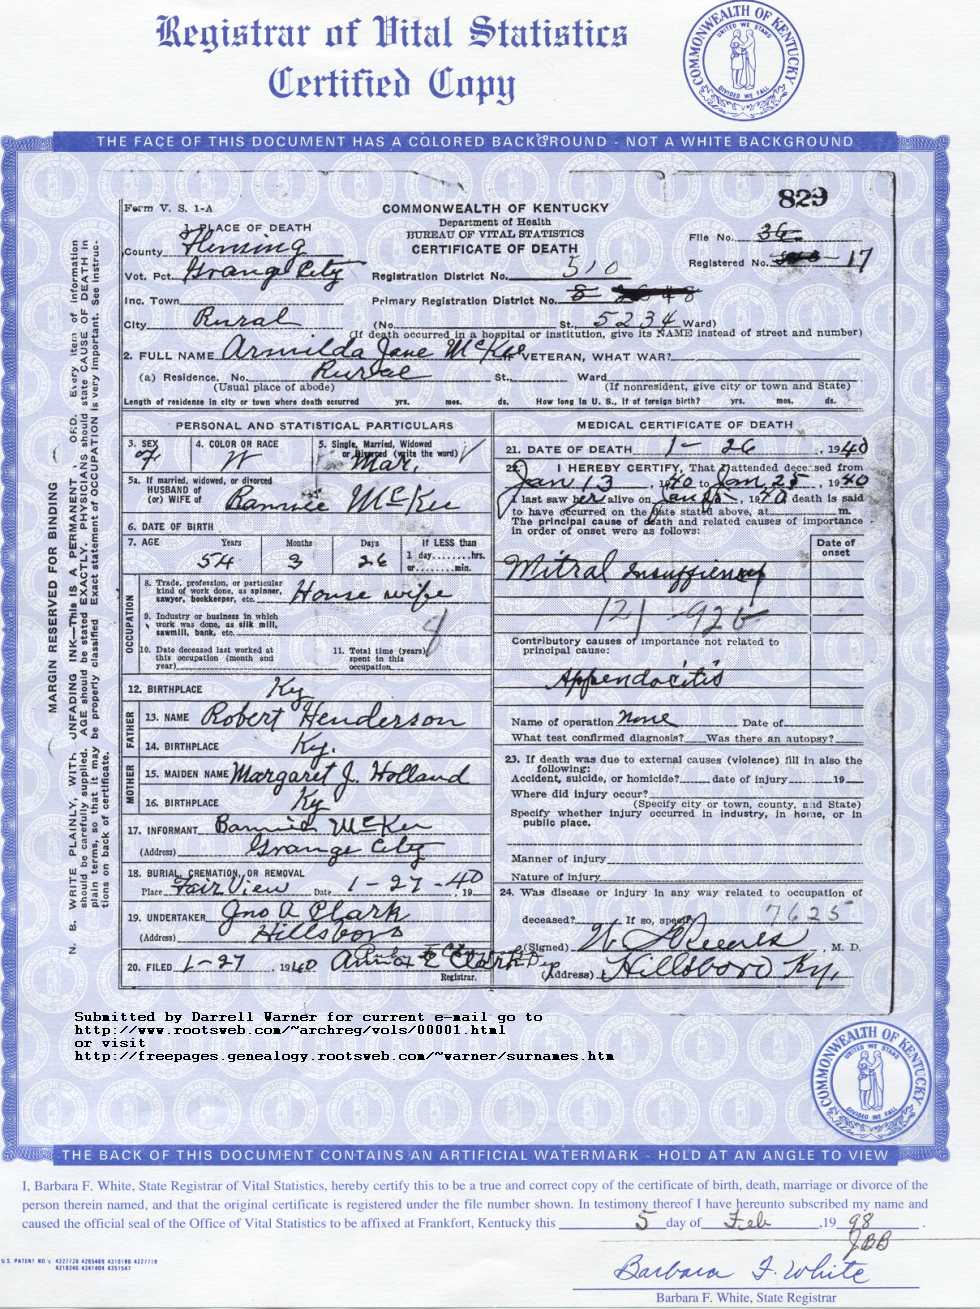 Registrar of Vital Statistics
Certified Copy
COMMONWEALTH OF KENTUCKY
UNITED WE STAND
DIVIDED WE FALL
THE FACE OF THIS DOCUMENT HAS A COLORED BACKGROUND - NOT A WHITE BACKGROUND
829
Form V. S. 1-A
COMMONWEALTH OF KENTUCKY
Department of Health
BUREAU OF VITAL STATISTICS
CERTIFICATE OF DEATH
File No. 36
Registered No. 17
1. PLACE OF DEATH
County Fleming
Vot. Pct. Grange City
Registration District No. 510
Inc. Town
Primary Registration District No. 8
City Rural
(No. St. 5234 Ward)
(If death occurred in a hospital or institution, give its NAME instead of street and number)
2. FULL NAME Armilda Jane McKee VETERAN, WHAT WAR?
(a) Residence. No. Rural St. Ward
(Usual place of abode) (If nonresident, give city or town and State)
Length of residence in city or town where death occurred yrs. mos. ds. How long in U. S., if of foreign birth? yrs. mos. ds.
PERSONAL AND STATISTICAL PARTICULARS
3. SEX F
4. COLOR OR RACE W
5. Single, Married, Widowed or Divorced (write the word) Mar.
5a. If married, widowed, or divorced
HUSBAND of
(or) WIFE of Bannie McKee
6. DATE OF BIRTH
7. AGE Years 54 Months 3 Days 26 If LESS than 1 day hrs. or min.
OCCUPATION
8. Trade, profession, or particular kind of work done, as spinner, sawyer, bookkeeper, etc. House wife
9. Industry or business in which work was done, as silk mill, sawmill, bank, etc.
10. Date deceased last worked at this occupation (month and year)
11. Total time (years) spent in this occupation
12. BIRTHPLACE Ky
FATHER
13. NAME Robert Henderson
14. BIRTHPLACE Ky.
MOTHER
15. MAIDEN NAME Margaret J. Holland
16. BIRTHPLACE Ky
17. INFORMANT Bannie McKee
(Address) Grange City
18. BURIAL, CREMATION, OR REMOVAL
Place Fair View Date 1-27-40, 19
19. UNDERTAKER Jno A Clark
(Address) Hillsboro
20. FILED 1-27, 1940
Registrar.
MEDICAL CERTIFICATE OF DEATH
21. DATE OF DEATH 1-26, 1940
22. I HEREBY CERTIFY, That I attended deceased from
Jan 13, 1940 to Jan 25, 1940
I last saw her alive on Jan 25, 1940 death is said
to have occurred on the date stated above, at m.
The principal cause of death and related causes of importance
in order of onset were as follows:
Date of onset
Mitral Insufficiency
121-92b
Contributory causes of importance not related to
principal cause:
Appendacitis
Name of operation None Date of
What test confirmed diagnosis? Was there an autopsy?
23. If death was due to external causes (violence) fill in also the
following:
Accident, suicide, or homicide? date of injury 19
Where did injury occur?
(Specify city or town, county, and State)
Specify whether injury occurred in industry, in home, or in
public place.
Manner of injury
Nature of injury
24. Was disease or injury in any way related to occupation of
7625
deceased? If so, specify
(Signed) M. D.
(Address) Hillsboro Ky.
MARGIN RESERVED FOR BINDING
N. B. WRITE PLAINLY, WITH UNFADING INK—This IS A PERMANENT Every item of information
should be carefully supplied. AGE should be stated EXACTLY. PHYSICIANS should state CAUSE OF DEATH in
plain terms, so that it may be properly classified. Exact statement of OCCUPATION is very important. See instruc-
tions on back of certificate.
Submitted by Darrell Warner for current e-mail go to
http://www.rootsweb.com/~archreg/vols/00001.html
or visit
http://freepages.genealogy.rootsweb.com/~warner/surnames.htm
COMMONWEALTH OF KENTUCKY
UNITED WE STAND
DIVIDED WE FALL
THE BACK OF THIS DOCUMENT CONTAINS AN ARTIFICIAL WATERMARK - HOLD AT AN ANGLE TO VIEW
I, Barbara F. White, State Registrar of Vital Statistics, hereby certify this to be a true and correct copy of the certificate of birth, death, marriage or divorce of the
person therein named, and that the original certificate is registered under the file number shown. In testimony thereof I have hereunto subscribed my name and
caused the official seal of the Office of Vital Statistics to be affixed at Frankfort, Kentucky this 5 day of Feb, 19 98.
JBB
Barbara F. White
Barbara F. White, State Registrar